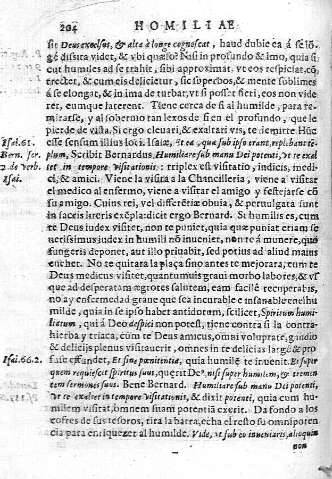 204 HOMILIAE
sit Deus excelsus, & alta à longe cognoscat, haud dubie ea à se lõ-
gè dissita videt, & vbi quæso? Nisi in profundo & imo, quia si-
cut humiles ad se trahit, sibi approximat, vt eos respiciat, cõ-
tractet, & cum eis delicietur, sic superbos, & mente sublimes
à se elongat, & in ima de turbat, vt si posset fieri, eos non vide-
ret, eumque laterent. Tiene cerca de si al humilde, para re-
mirarse, y al soberuio tan lexos de si en el profundo, que le
pierde de vista. Si ergo eleuari, & exaltari vis, te
esse sensum illius loci Isaiæ, Et ea, que sub ipso erant, replebant tẽ-
Isai. 61.
plum, Scribit Bernardus, Humiliare sub manu Dei potenti, vt te exal
Bern. ser.
tet in tempore visitationis: triplex est visitatio, iudicis, medi-
2. de verb.
ci, & amici. Viene la visita a la Chancilleria, viene a visitar
Isai.
el medico al enfermo, viene a visitar el amigo y festejarse cõ
su amigo. Cuius rei, vel differẽtiæ obuia, & peruulgata sunt
in sacris literis exẽpla: dicit ergo Bernard. Si humilis es, cum
te Deus iudex visitet, non te puniet, quia quæ puniat etiam se
uerissimus iudex in humili nõ inueniet, non te à munere, quo
fungeris deponet, aut illo priuabit, sed potius ad aliud maius
euehet. No te quitara la plaça sino antes te mejorara; cum te
Deus medicus visitet, quantumuis graui morbo labores, & vs
que ad desperatam ægrotes salutem, eam facilè recuperabis,
no ay enfermedad graue que sea incurable e insanable en el hu
milde, quia in se ipso habet antidotum, scilicet, Spiritum humi-
liatum, qui à Deo despici non potest, tiene contra si la contra-
hierba y triaca, cum te Deus amicus, omni voluptate, gaudio
& delicijs plenus visitauerit, omnes in te delicias largè & pro
Isai. 66. 2.
fusè effundet, Et sine pœnitentia, quia humilẽ te inuenit. Et super
quem requiescet spiritus suus, quærit Dẽ, nisi super humilem, & tremen
tem sermones suos. Bene Bernard. Humiliare sub manu Dei potenti,
vt te exaltet in tempore visitationis, & dixit potenti, quia cum hu-
milem visitat, omnem suam potentiã exerit. Da fondo a los
cofres de sus tesoros, tira la barra, echa el resto su omnipoten
cia para enriquezer al humilde. Vide, vt sub eo inueniaris, alioquin
non